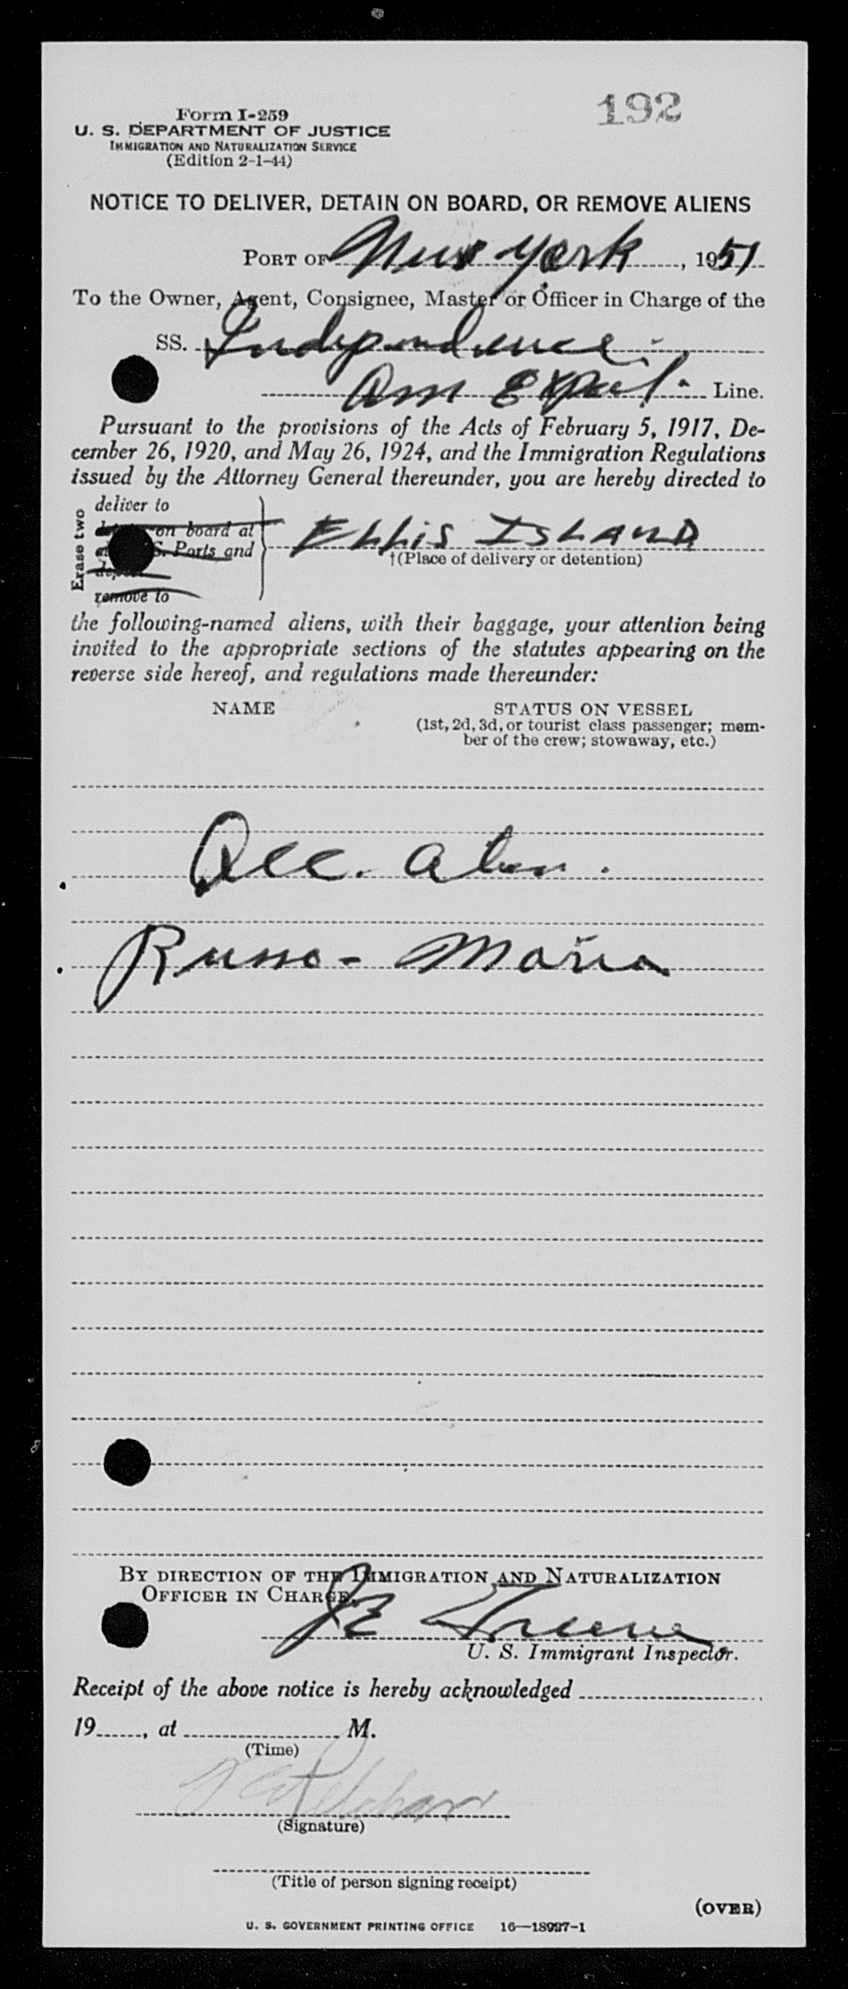 192
Form I-259
U. S. DEPARTMENT OF JUSTICE
IMMIGRATION AND NATURALIZATION SERVICE
(Edition 2-1-44)
NOTICE TO DELIVER, DETAIN ON BOARD, OR REMOVE ALIENS
PORT OF New York, 1951
To the Owner, Agent, Consignee, Master or Officer in Charge of the
SS. Independence
Am Export Line.
Pursuant to the provisions of the Acts of February 5, 1917, De-
cember 26, 1920, and May 26, 1924, and the Immigration Regulations
issued by the Attorney General thereunder, you are hereby directed to
Erase two
deliver to
on board at
S. Ports and
remove to
ELLIS ISLAND
†(Place of delivery or detention)
the following-named aliens, with their baggage, your attention being
invited to the appropriate sections of the statutes appearing on the
reverse side hereof, and regulations made thereunder:
NAME STATUS ON VESSEL
(1st, 2d, 3d, or tourist class passenger; mem-
ber of the crew; stowaway, etc.)
Acc. alien.
Russo - Maria
BY DIRECTION OF THE IMMIGRATION AND NATURALIZATION
OFFICER IN CHARGE
J E Greene
U. S. Immigrant Inspector.
Receipt of the above notice is hereby acknowledged
19 , at M.
(Time)
(Signature)
(Title of person signing receipt)
(OVER)
U. S. GOVERNMENT PRINTING OFFICE 16—18937-1